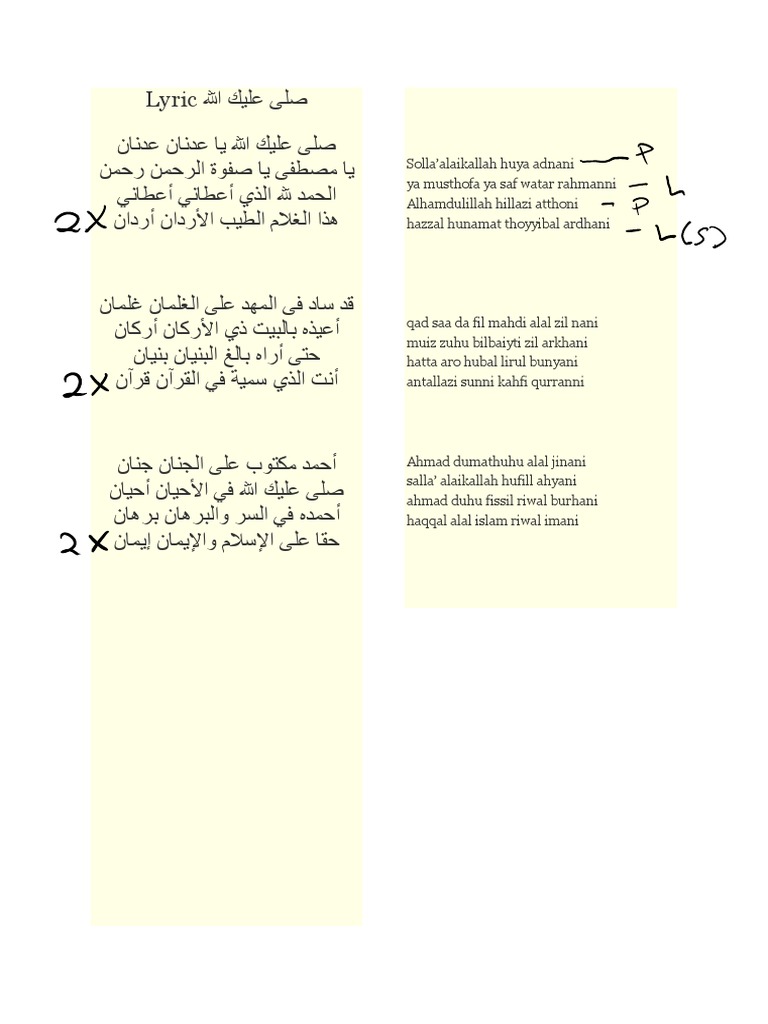 Lyric صلى عليك الله
صلى عليك الله يا عدنان عدنان
يا مصطفى يا صفوة الرحمن رحمن
الحمد لله الذي أعطاني أعطاني
2X هذا الغلام الطيب الأردان أردان
قد ساد فى المهد على الغلمان غلمان
أعيذه بالبيت ذي الأركان أركان
حتى أراه بالغ البنيان بنيان
2X أنت الذي سمية في القرآن قرآن
أحمد مكتوب على الجنان جنان
صلى عليك الله في الأحيان أحيان
أحمده في السر والبرهان برهان
2X حقا على الإسلام والإيمان إيمان
Solla’alaikallah huya adnani — P
ya musthofa ya saf watar rahmanni – L
Alhamdulillah hillazi atthoni – P
hazzal hunamat thoyyibal ardhani – L(S)
qad saa da fil mahdi alal zil nani
muiz zuhu bilbaiyti zil arkhani
hatta aro hubal lirul bunyani
antallazi sunni kahfi qurranni
Ahmad dumathuhu alal jinani
salla’ alaikallah hufill ahyani
ahmad duhu fissil riwal burhani
haqqal alal islam riwal imani